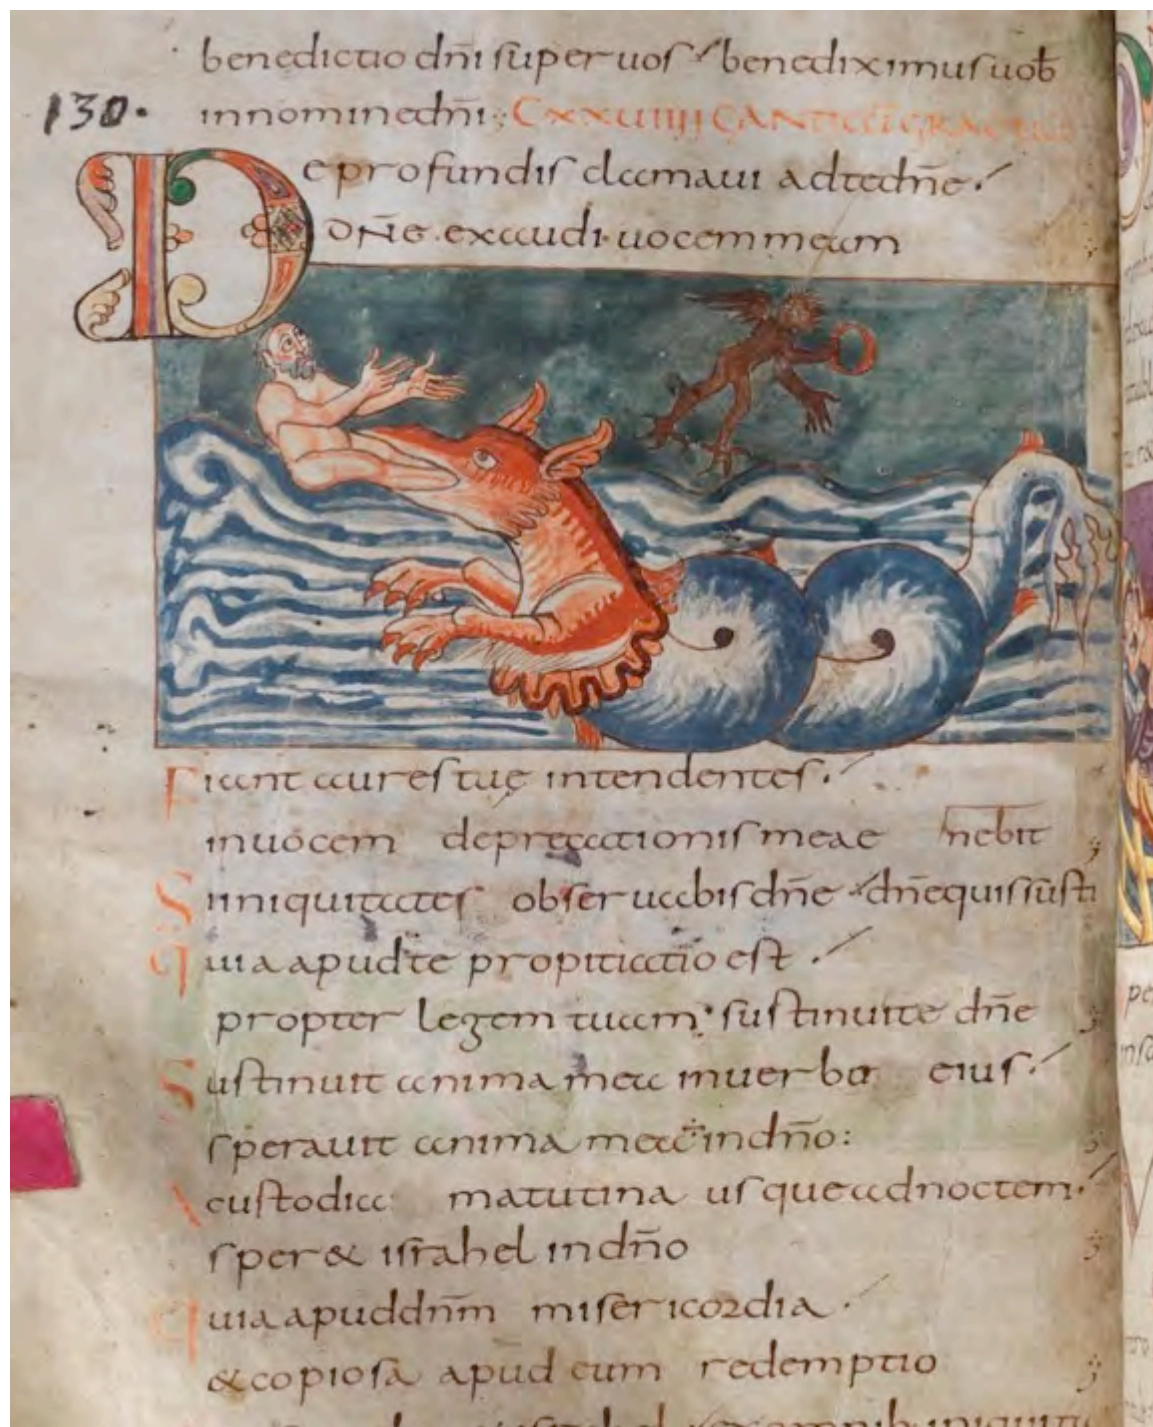 benedictio dn̄i super uos benediximus uob̄
130.
in nomine dn̄i : CXXVIIII CANTICU GRADUU
De profundis clamaui ad te dn̄e ./
DN̄E. exaudi. uocem meam
Fiant aures tuę intendentes ./
in uocem deprecationis meae
Si iniquitates obseruabis dn̄e dn̄e quis susti nebit ;
Quia apud te propitiatio est ./
propter legem tuam. sustinui te dn̄e ;
Sustinuit anima mea in uerbo eius ./
sperauit anima mea in dn̄o : ;
A custodia matutina usque ad noctem ./
sper& israhel in dn̄o ;
Quia apud dn̄m misericordia ./
& copiosa apud eum redemptio ;